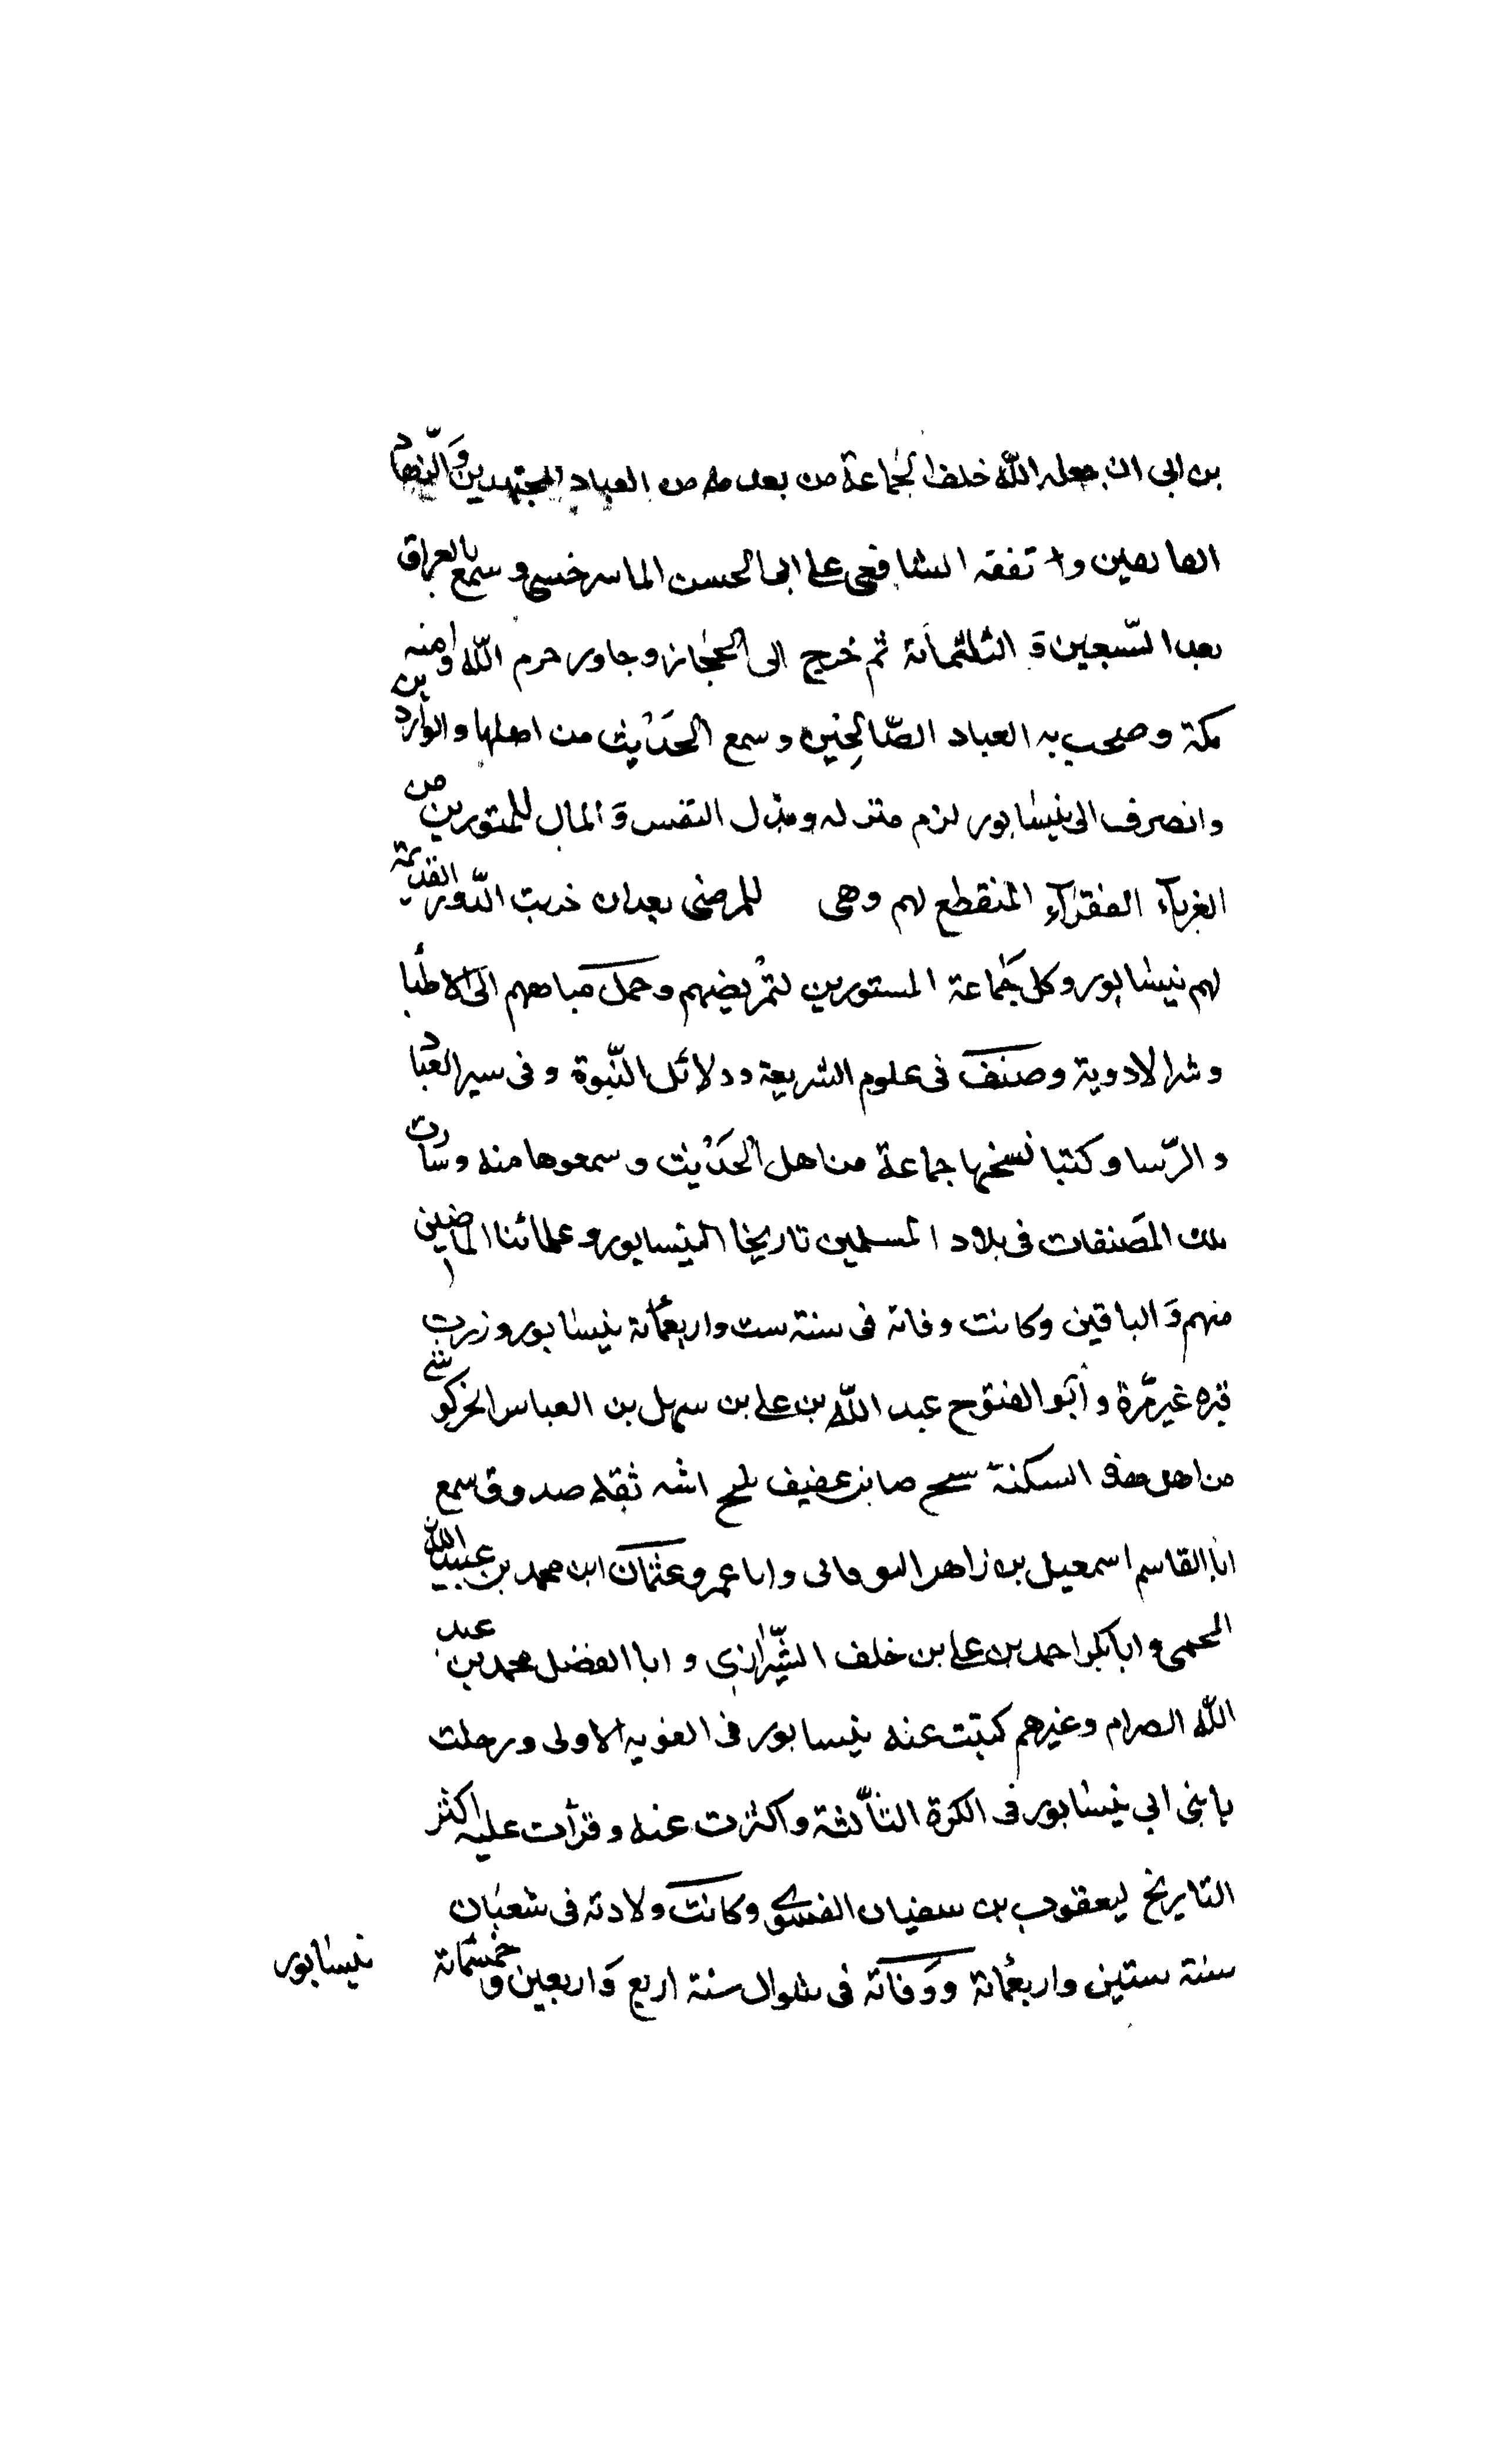 بن ابى ان جعله الله خلفا لجماعة من بعدمه من العباد المجتهدين وَالزّهاد
العا بصين وا تفقه الشافعى على ابى الحسن الماسرخسى و سمع بالعراق
بعد التّسعين وَ الثلثمائة ثم خرج الى الحجاز و جاور حرم الله وامنه
مكة و صحب به العباد الصّالحِين و سمع الحَدْيث من اهلها و الواردين
وانصرف الى نيسابور لزم منزله و بذل النفس وَ المال للمتورين من
الغربآء الفقرآء المنقطع لهم وهى للمرضى بعد ان خربت الدّور القديمة
لهم نيسابور و كل جماعة المستورين لتمريضهم و حمل مياههم الى الاطبا
و شرا لادوية و صنف فى علوم الشريعة و دلائل النّبوة و فى سير العبّاد
و الرّسا و كتبا نسخها جماعة من اهل الحَدْيث و سمعوها منه و سارت
ملك المصَنفات فى بلاد المسلمين تاريخا النيسابور و علمائنا الماضين
منهم وَ الباقين و كانت وفاته فى سنة ست واربعمائة نيسابور و زرت
قبره غير مَّرة و أبَو الفتوح عبد الله بن على بن سهل بن العباس الخركوشى
من اهل هذه السكنة سح صابن عفيف لح اشه ثقله صدوق سمع
ابا القاسم اسمعيل بن زاهد النوقانى و ابا عمرو عثمان ابن محمد بن عبيد الله
المحمى و ابا بكر احمد بن على بن خلف الشّيرازى و ابا الفضل محمد بن عبد
الله الصرام و غيرهم كتبت عنه نيسابور فى النوبه الاولى و رحلت
بابنى ابى نيسابور فى الكرة الثاّلثة و اكثرت عنه و قرأت عليه اكثر
التاريخ ليعقوب بن سفيان الفسوى و كانت ولادته فى شعبان
سنة ستين واربعمائة ووفاته فى شوال سنة اربع وَاربعين و خمسمائة نيسابور